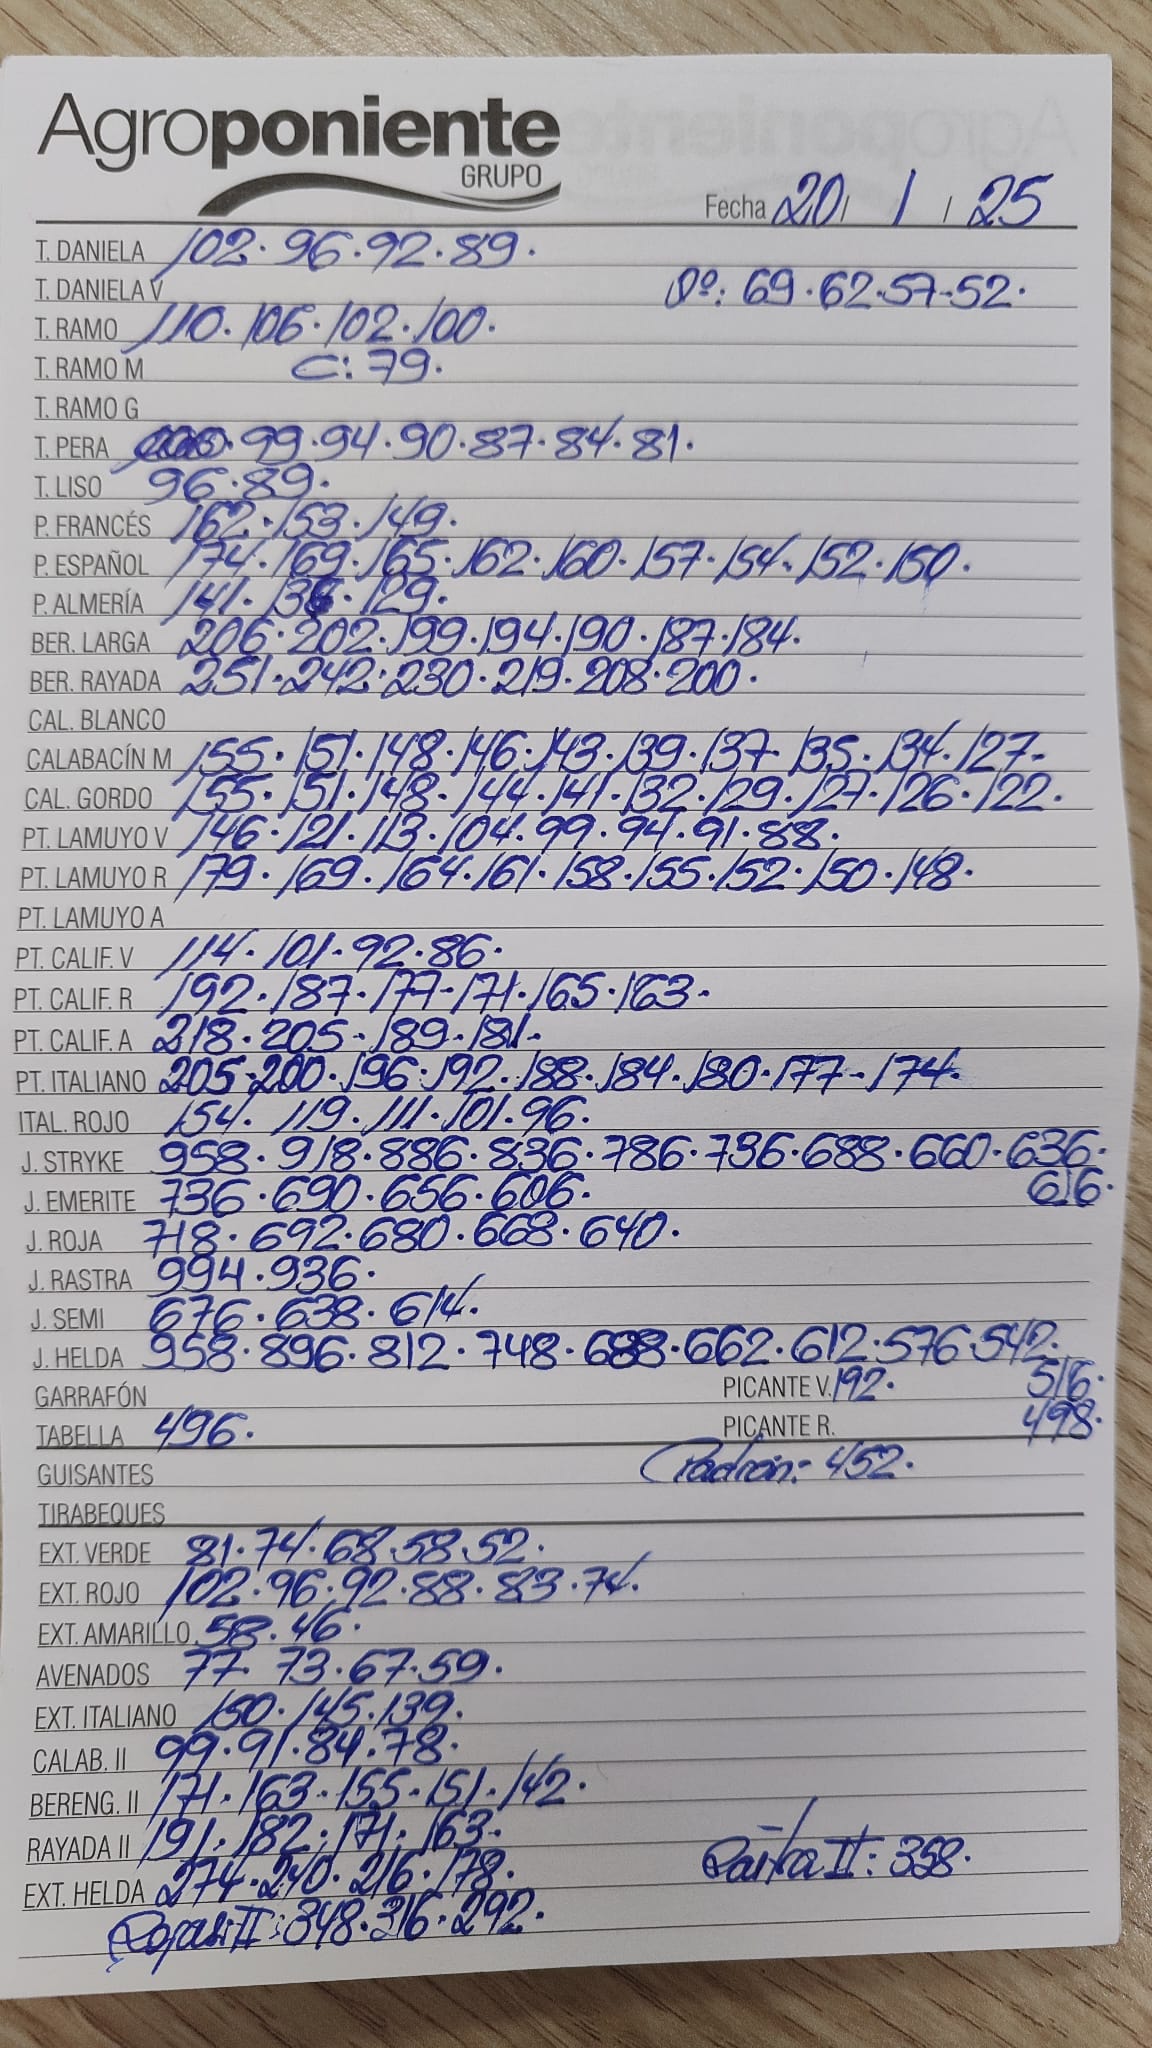 Agroponiente
GRUPO
Fecha 20/ 1 / 25
T. DANIELA 102. 96. 92. 89.
T. DANIELA V Dº: 69. 62. 57. 52.
T. RAMO 110. 106. 102. 100.
T. RAMO M C: 79.
T. RAMO G
T. PERA 99. 94. 90. 87. 84. 81.
T. LISO 96. 89.
P. FRANCÉS 162. 153. 149.
P. ESPAÑOL 174. 169. 165. 162. 160. 157. 154. 152. 150.
P. ALMERÍA 141. 129.
BER. LARGA 206. 202. 199. 194. 190. 187. 184.
BER. RAYADA 251. 242. 230. 219. 208. 200.
CAL. BLANCO
CALABACÍN M 155. 151. 148. 146. 143. 139. 137. 135. 134. 127.
CAL. GORDO 155. 151. 148. 144. 141. 132. 129. 127. 126. 122.
PT. LAMUYO V 146. 121. 113. 104. 99. 94. 91. 88.
PT. LAMUYO R 179. 169. 164. 161. 158. 155. 152. 150. 148.
PT. LAMUYO A
PT. CALIF. V 114. 101. 92. 86.
PT. CALIF. R 192. 187. 177. 171. 165. 163.
PT. CALIF. A 218. 205. 189. 181.
PT. ITALIANO 205. 200. 196. 192. 188. 184. 180. 177. 174.
ITAL. ROJO 154. 119. 111. 101. 96.
J. STRYKE 958. 918. 886. 836. 786. 736. 688. 660. 636.
J. EMERITE 736. 690. 656. 606. 616.
J. ROJA 718. 692. 680. 668. 640.
J. RASTRA 994. 936.
J. SEMI 676. 638. 614.
J. HELDA 958. 896. 812. 748. 688. 662. 612. 576. 542.
GARRAFÓN PICANTE V. 192. 516.
TABELLA 496. PICANTE R. 498.
GUISANTES Padrón: 452.
TIRABEQUES
EXT. VERDE 81. 74. 68. 58. 52.
EXT. ROJO 102. 96. 92. 88. 83. 74.
EXT. AMARILLO 58. 46.
AVENADOS 77. 73. 67. 59.
EXT. ITALIANO 150. 145. 139.
CALAB. II 99. 91. 84. 78.
BERENG. II 171. 163. 155. 151. 142.
RAYADA II 191. 182. 171. 163.
EXT. HELDA 274. 240. 216. 178. II: 358.
II: 348. 316. 292.